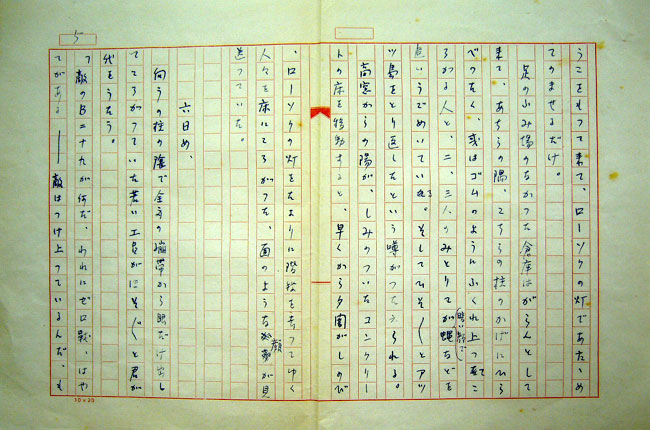 5
うこをもつて来て、ローソクの灯であたゝめ
てのませるだけ。
足のふみ場のなかつた倉庫はがらんとして
来て、あちらの隅、こちらの柱のかげにひら
べつたく、或はゴムのようにふくれ上つてこ
ろがる人と、二、三人のみとりてが暗い顔で蝿などを
追いうごめいている。そしてひそ〳〵とアツ
ツ島をとり返したという噂がつたえられる。
高窓からの陽が、しみのついたコンクリー
トの床を移動すると、早くから夕闇がしのび
、ローソクの灯をたよりに階段を去つてゆく
人々を床にころがつた、面のような顔が見
送つていた。
六日め、
向うの柱の陰で全身の繃帯から眼だけ出し
てころがつていた若い工員がほそ〴〵と君が
代をうたう。
敵のB二十九が何だ、われにゼロ戦、はや
てがある――敵はつけ上つているんだ。も
10×20